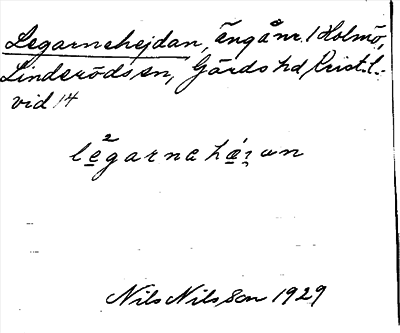 Legarnehejdan, äng å nr. 1 Holmö,
Linderöds sn, Gärds hd, Krist. l.
vid 14
Nils Nilsson 1929